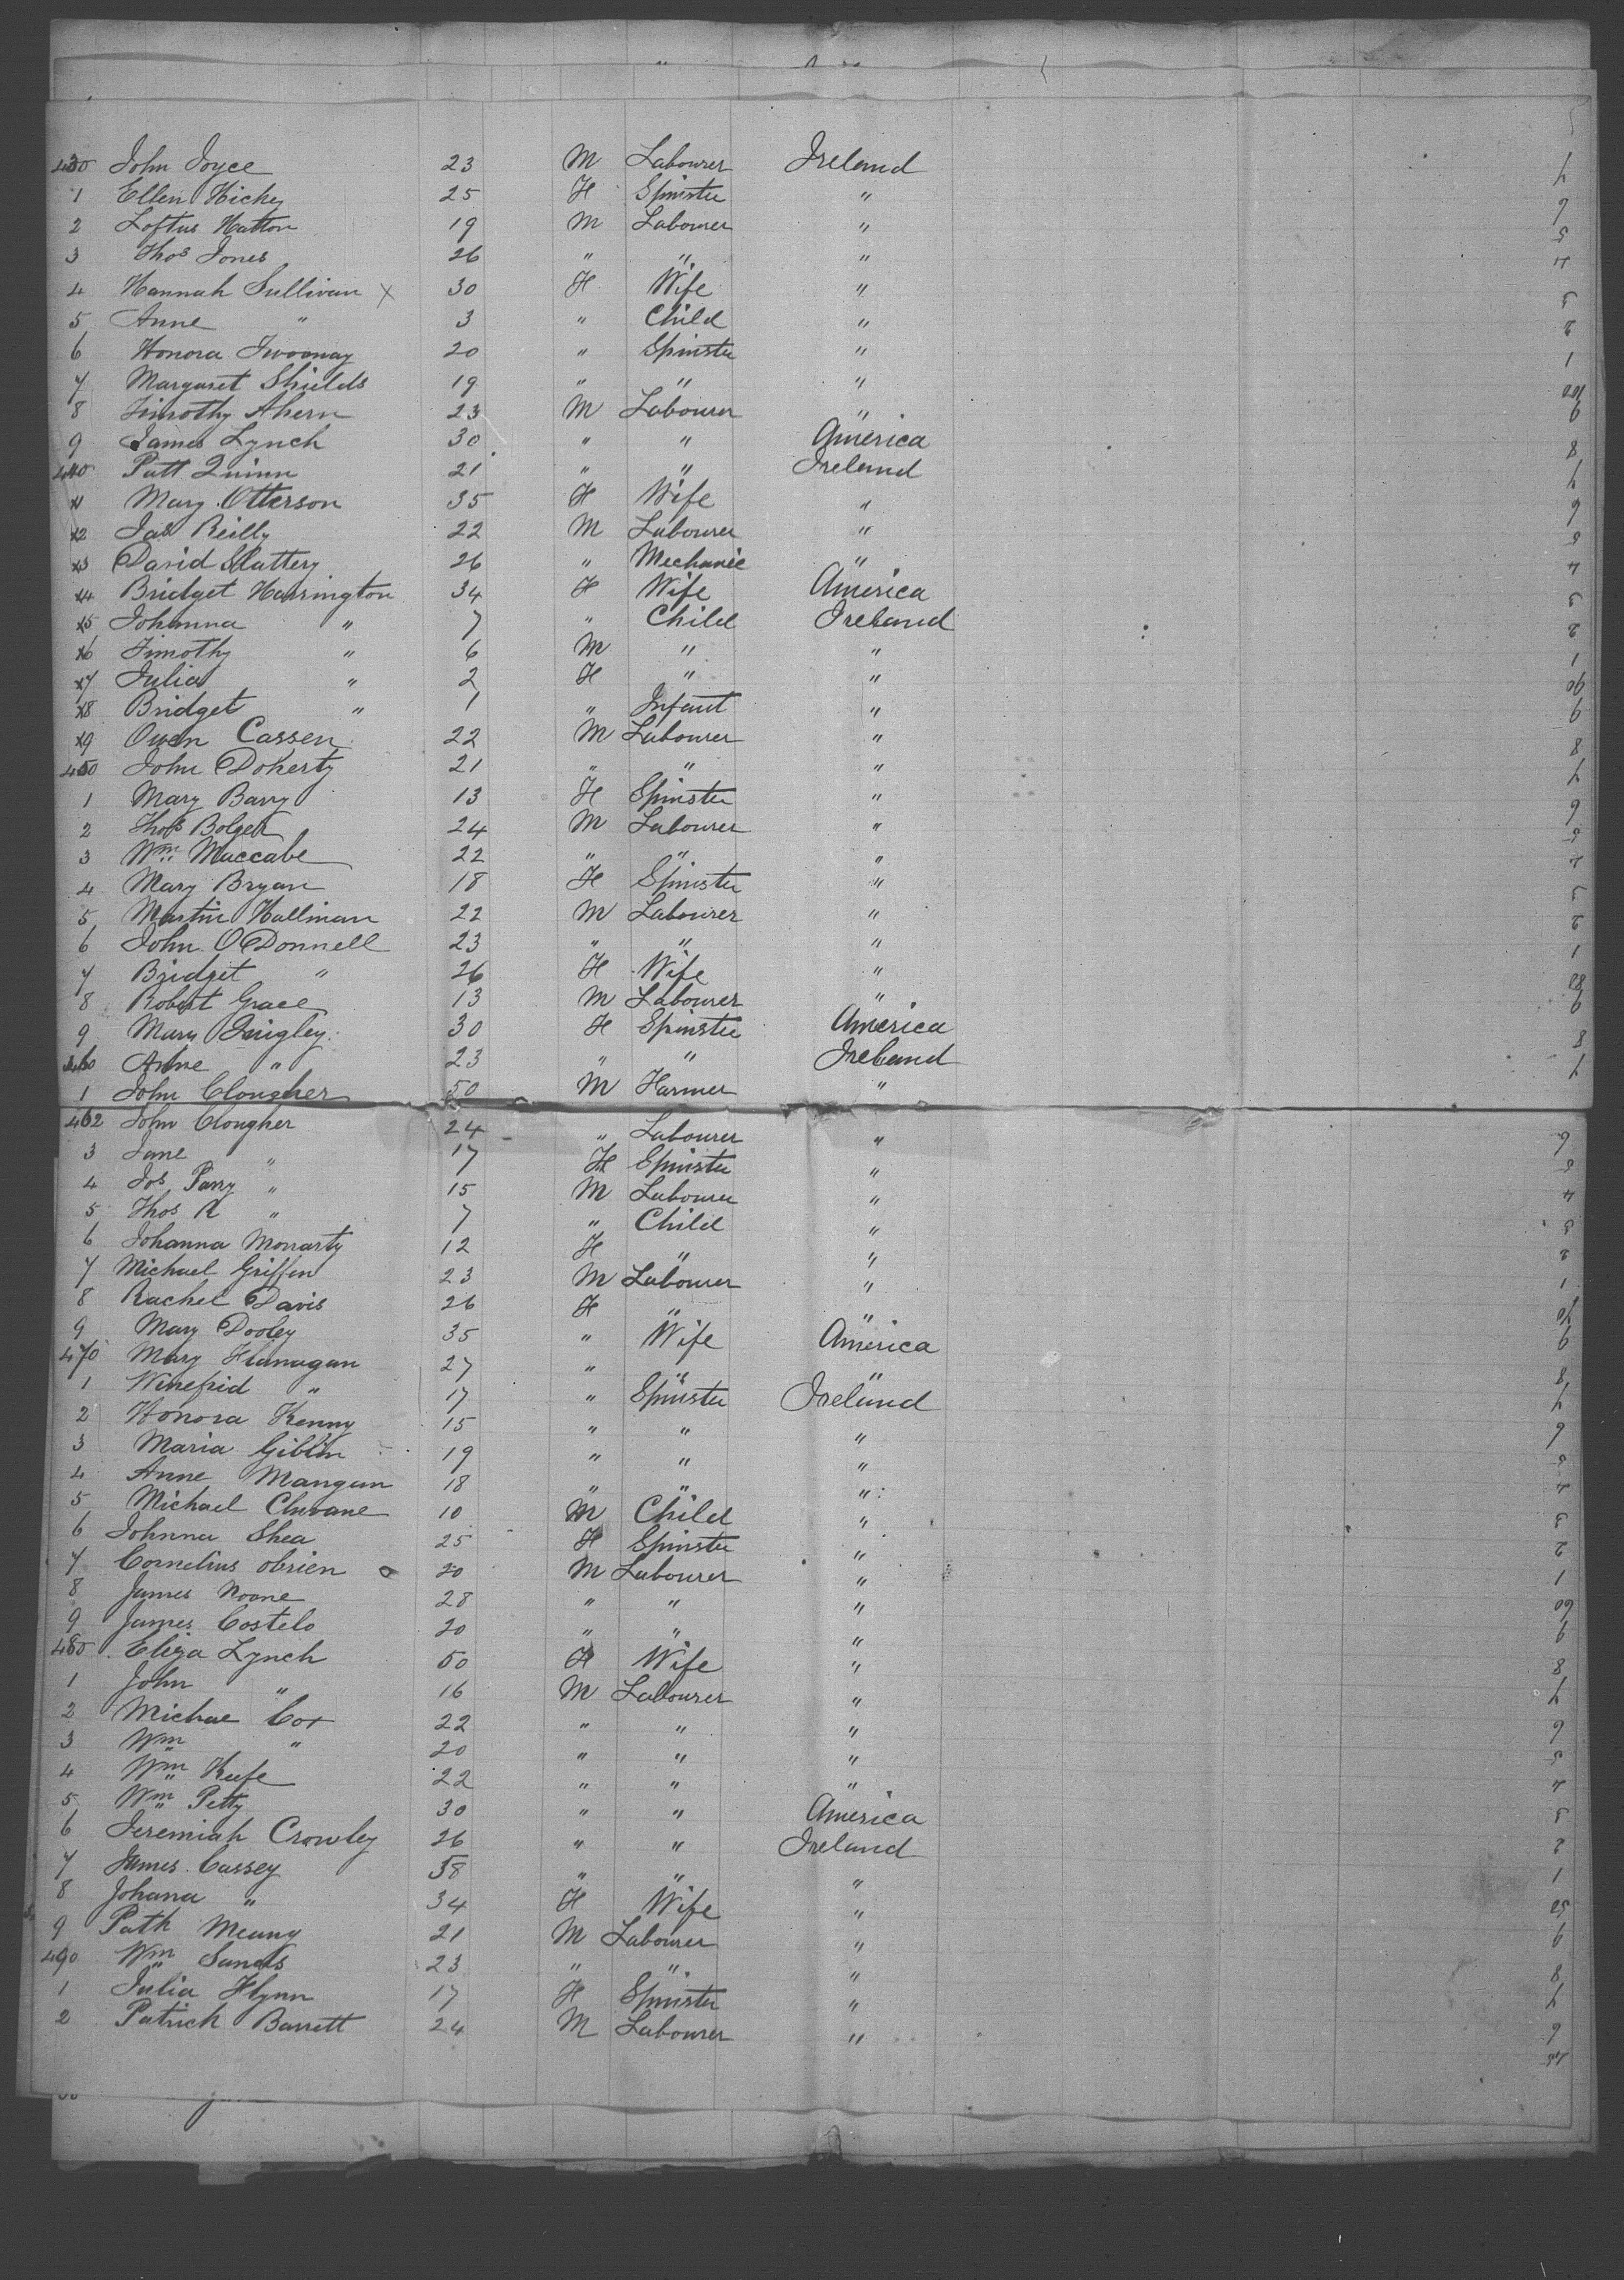 430 John Joyce 23 M Labourer Ireland
1 Ellen Hickey 25 F Spinster "
2 Loftus Hatton 19 M Labourer "
3 Thos Jones 26 " " "
4 Hannah Sullivan x 30 F Wife "
5 Anne " 3 " Child "
6 Honora Twoomay 20 " Spinster "
7 Margaret Shields 19 " " "
8 Timothy Ahern 23 M Labourer "
9 James Lynch 30 " " America
440 Patt Quinn 21 " " Ireland
x1 Mary Otterson 35 F Wife "
x2 Jas Reilly 22 M Labourer "
x3 David Slattery 26 " Mechanic "
x4 Bridget Harrington 34 F Wife America
x5 Johanna " 7 " Child Ireland
x6 Timothy " 6 M " "
x7 Julia " 2 F " "
x8 Bridget " 1 " Infant "
x9 Owen Cassen 22 M Labourer "
450 John Doherty 21 " " "
1 Mary Barry 13 F Spinster "
2 Thos Bolger 24 M Labourer "
3 Wm Maccabe 22 " " "
4 Mary Bryan 18 F Spinster "
5 Martin Hallinan 22 M Labourer "
6 John ODonnell 23 " " "
7 Bridget " 26 F Wife "
8 Robert Grace 13 M Labourer "
9 Mary Quigley 30 F Spinster America
460 Anne " 23 " " Ireland
1 John Clougher 50 M Farmer "
462 John Clougher 24 " Labourer "
3 Jane " 17 F Spinster "
4 Jos Parry " 15 M Labourer "
5 Thos R " 7 " Child "
6 Johanna Moriarty 12 F " "
7 Michael Griffin 23 M Labourer "
8 Rachel Davis 26 F " "
9 Mary Dooley 35 " Wife America
470 Mary Flanagan 27 " " "
1 Winefrid " 17 " Spinster Ireland
2 Honora Kenny 15 " " "
3 Maria Giblin 19 " " "
4 Anne Mangan 18 " " "
5 Michael 10 M Child "
6 Johnna Shea 25 F Spinster "
7 Cornelius obrien 20 M Labourer "
8 James Noone 28 " " "
9 James Costelo 20 " " "
480 Eliza Lynch 50 F Wife "
1 John " 16 M Labourer "
2 Michae Cox 22 " " "
3 Wm " 20 " " "
4 Wm Keefe 22 " " "
5 Wm Petty 30 " " America
6 Jeremiah Crowley 26 " " Ireland
7 James Cassey 38 " " "
8 Johana " 34 F Wife "
9 Path 21 M Labourer "
490 Wm Sands 23 " " "
1 Julia Flynn 17 F Spinster "
2 Patrick Barrett 24 M Labourer "